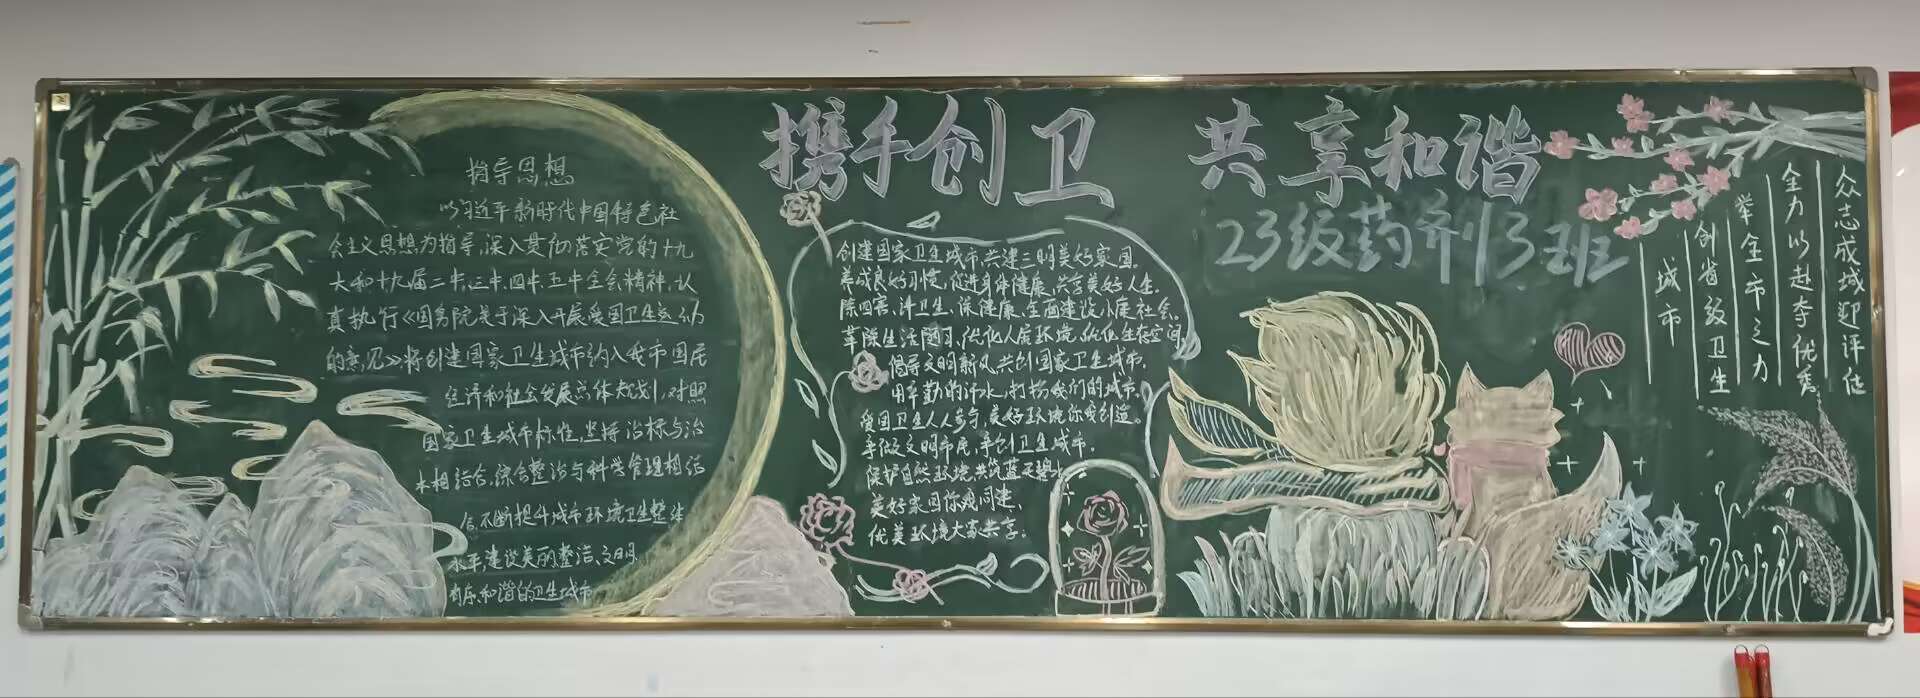 指导思想
以习近平新时代中国特色社
会主义思想为指导,深入贯彻落实党的十九
大和十九届二中,三中,四中,五中全会精神,认
真执行《国务院关于深入开展爱国卫生运动
的意见》,将创建国家卫生城市纳入我市国民
经济和社会发展总体规划,对照
国家卫生城市标准,坚持治标与治
本相结合,综合整治与科学管理相结
合,不断提升城市环境卫生整体
水平,建设美丽,整洁、文明
有序,和谐的卫生城市
携手创卫 共享和谐
23级药剂13班
创建国家卫生城市,共建三明美好家园.
养成良好习惯,促进身体健康,共享美好人生.
除四害,讲卫生,保健康,全面建设小康社会.
革除生活陋习,优化人居环境,优化生态空间,
倡导文明新风,共创国家卫生城市.
用辛勤的汗水,打扮我们的城市.
爱国卫生人人参与,美好环境你我创造。
争做文明市民,争创卫生城市.
保护自然环境,共筑蓝天碧水
美好家园你我同建、
优美环境大家共享。
众志成城迎评估
全力以赴夺优秀
举全市之力
创省级卫生
城市